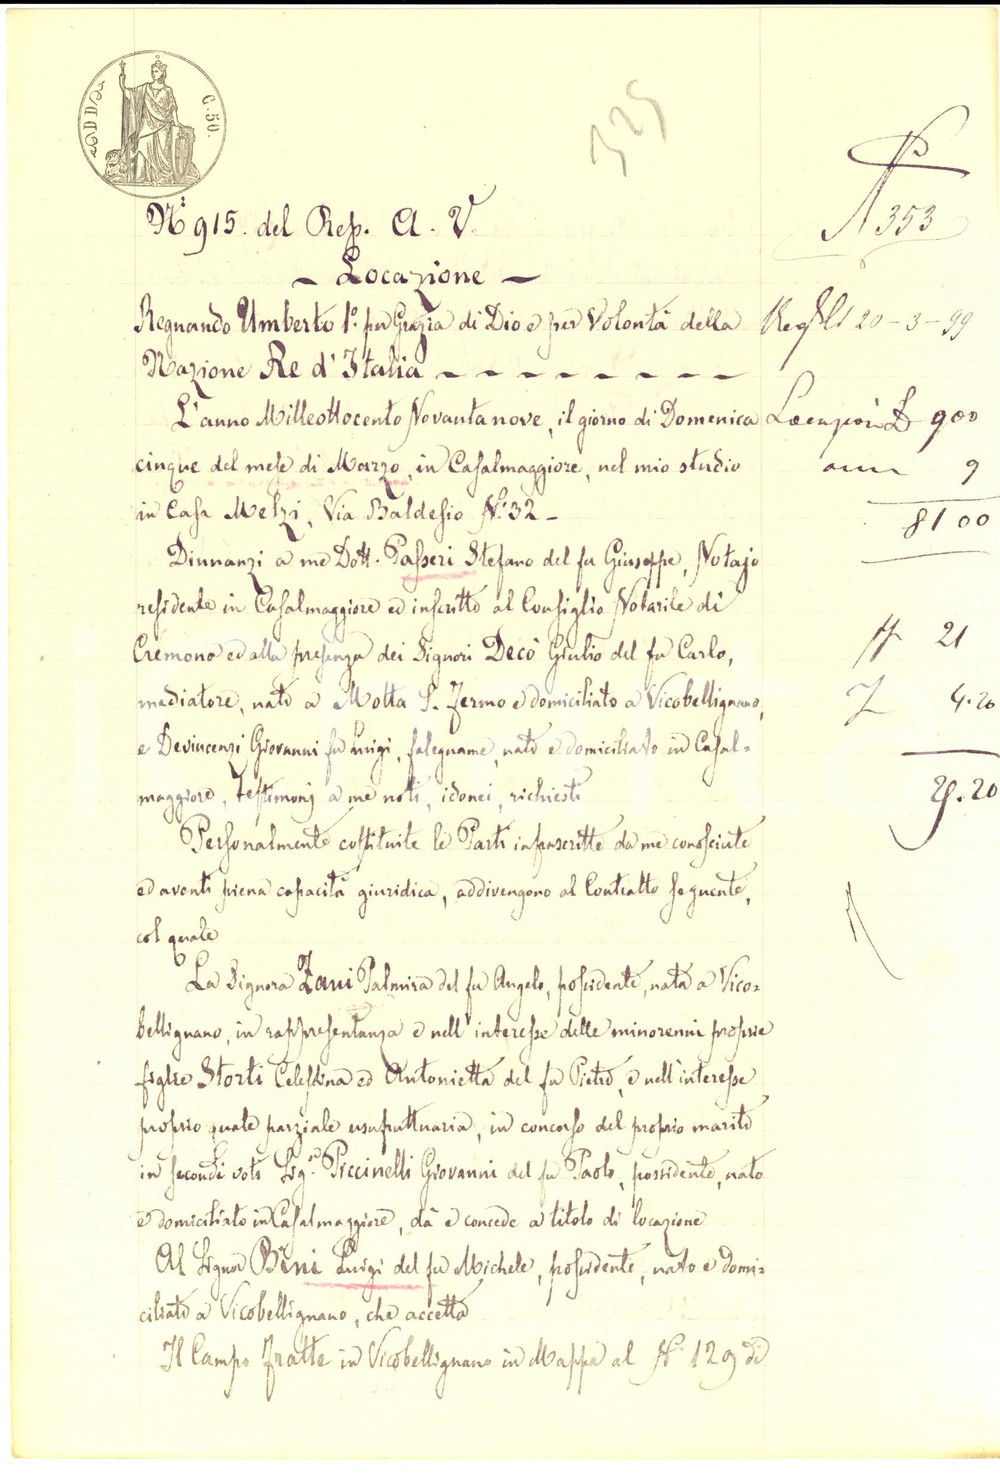 C. 50.
325
N° 353
N.° 915. del Rep. A. V.
- Locazione -
Regnando Umberto 1°. per Grazia di Dio e per Volontà della
Reg 20-3-99
Nazione Re d'Italia
L'anno Milleottocento Novantanove, il giorno di Domenica
Locazioni £ 900
cinque del mese di Marzo, in Casalmaggiore, nel mio studio
anni 9
in Casa Melzi, Via Baldesio N.° 32 -
8100
Dinnanzi a me Dott. Passeri Stefano del fu Giuseppe, Notajo
residente in Casalmaggiore ed inscritto al Consiglio Notarile di
21
Cremona ed alla presenza dei Signori Decò Giulio del fu Carlo,
mediatore, nato a Motta S. Fermo e domiciliato a Vicobellignano,
4.20
e Devincenzi Giovanni fu Luigi, falegname, nato e domiciliato in Casal=
maggiore, Testimonj a me noti, idonei, richiesti
25.20
Personalmente costituite le Parti infrascritte da me conosciute
ed aventi piena capacità giuridica, addivengono al Contratto seguente,
col quale
La Signora Zani Palmira del fu Angelo, possidente, nata a Vico=
bellignano, in rappresentanza e nell'interesse delle minorenni proprie
figlie Storti Celestina ed Antonietta del fu Pietro, e nell'interesse
proprio quale parziale usufruttuaria, in concorso del proprio marito
in secondi voti Sig.r Piccinelli Giovanni del fu Paolo, possidente, nato
e domiciliato in Casalmaggiore, dà e concede a titolo di locazione
Al Signor Bini Luigi del fu Michele, possidente, nato e domi=
ciliato a Vicobellignano, che accetta
Il Campo Fratte in Vicobellignano in Mappa al N.° 129 di